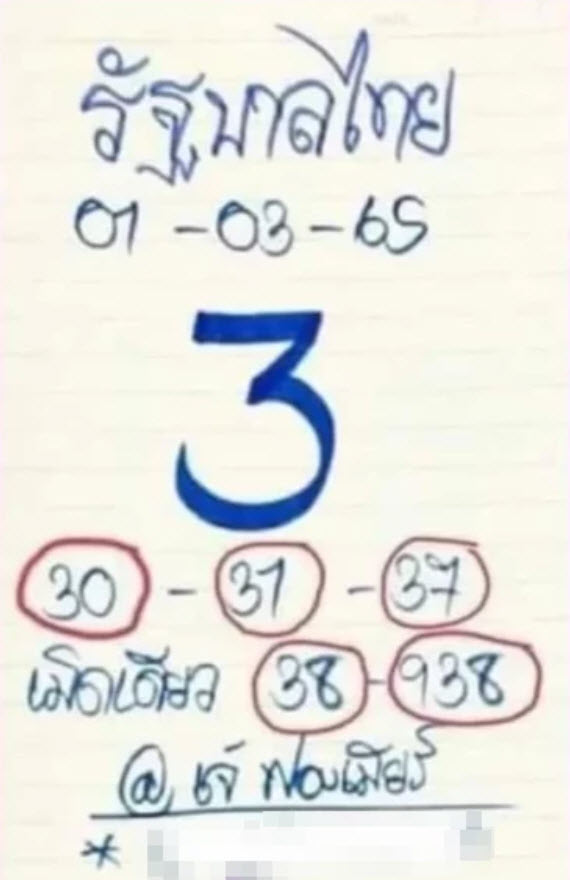 รัฐบาลไทย
01-03-65
3
30-31-37
เม็ดเดียว 38-938
@ เจ๊ฟองเบียร์
*